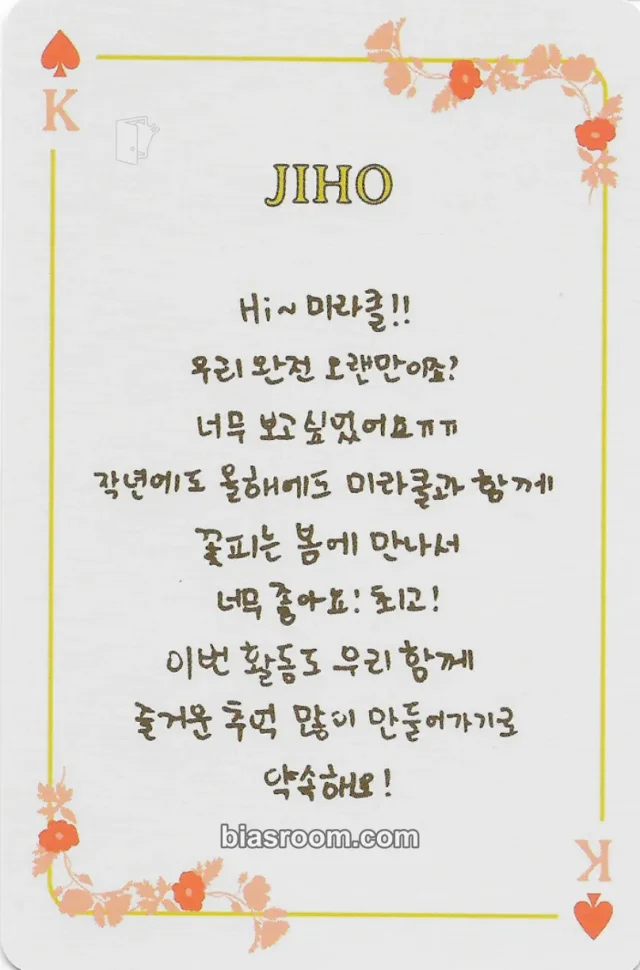 K
JIHO
Hi~ 미라클!!
우리 완전 오랜만이죠?
너무 보고싶었어요ㅠㅠ
작년에도 올해에도 미라클과 함께
꽃피는 봄에 만나서
너무 좋아요! 최고!
이번 활동도 우리 함께
즐거운 추억 많이 만들어가기로
약속해요!
biasroom.com
K